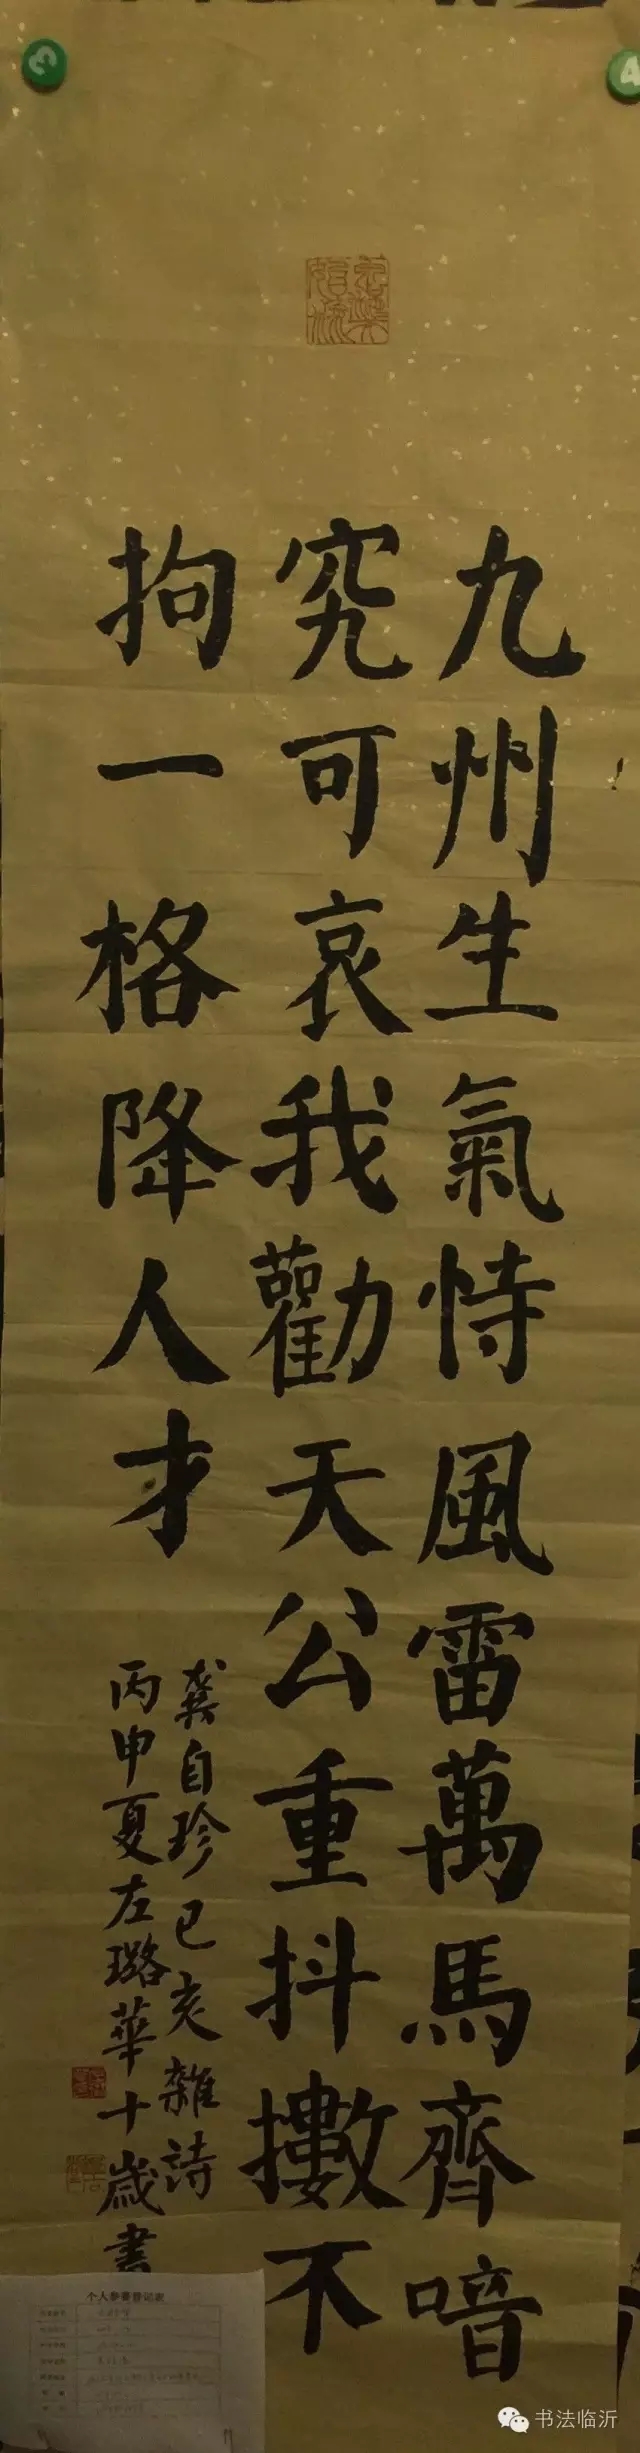 九州生氣恃風雷萬馬齊喑
究可哀我勸天公重抖擻不
拘一格降人才
龔自珍己亥雜詩
丙申夏左璐華十歲書
个人参赛登记表
书法临沂
3
4